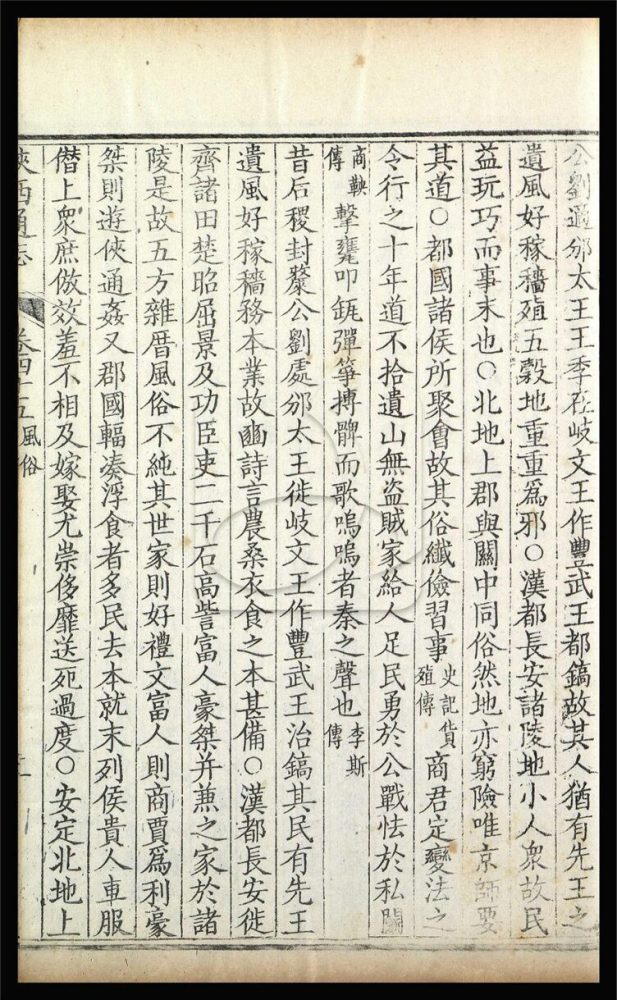 公劉適邠太王王季在岐文王作豐武王都鎬故其人猶有先王之
遺風好稼穡殖五穀地重重爲邪○漢都長安諸陵地小人衆故民
益玩巧而事末也○北地上郡與關中同俗然地亦窮險唯京師要
其道○都國諸侯所聚會故其俗纖儉習事史記貨殖傳商君定變法之
令行之十年道不拾遺山無盜賊家給人足民勇於公戰怯於私鬭
商鞅傳擊甕叩缻彈箏搏髀而歌嗚嗚者秦之聲也李斯傳
昔后稷封斄公劉處邠太王徙岐文王作豐武王治鎬其民有先王
遺風好稼穡務本業故豳詩言農桑衣食之本甚備○漢都長安徙
齊諸田楚昭屈景及功臣吏二千石高訾富人豪桀并兼之家於諸
陵是故五方雜厝風俗不純其世家則好禮文富人則商賈爲利豪
桀則遊俠通姦又郡國輻湊浮食者多民去本就末列侯貴人車服
僭上衆庶倣效羞不相及嫁娶尤崇侈靡送死過度○安定北地上
陝西通志 卷四十五風俗